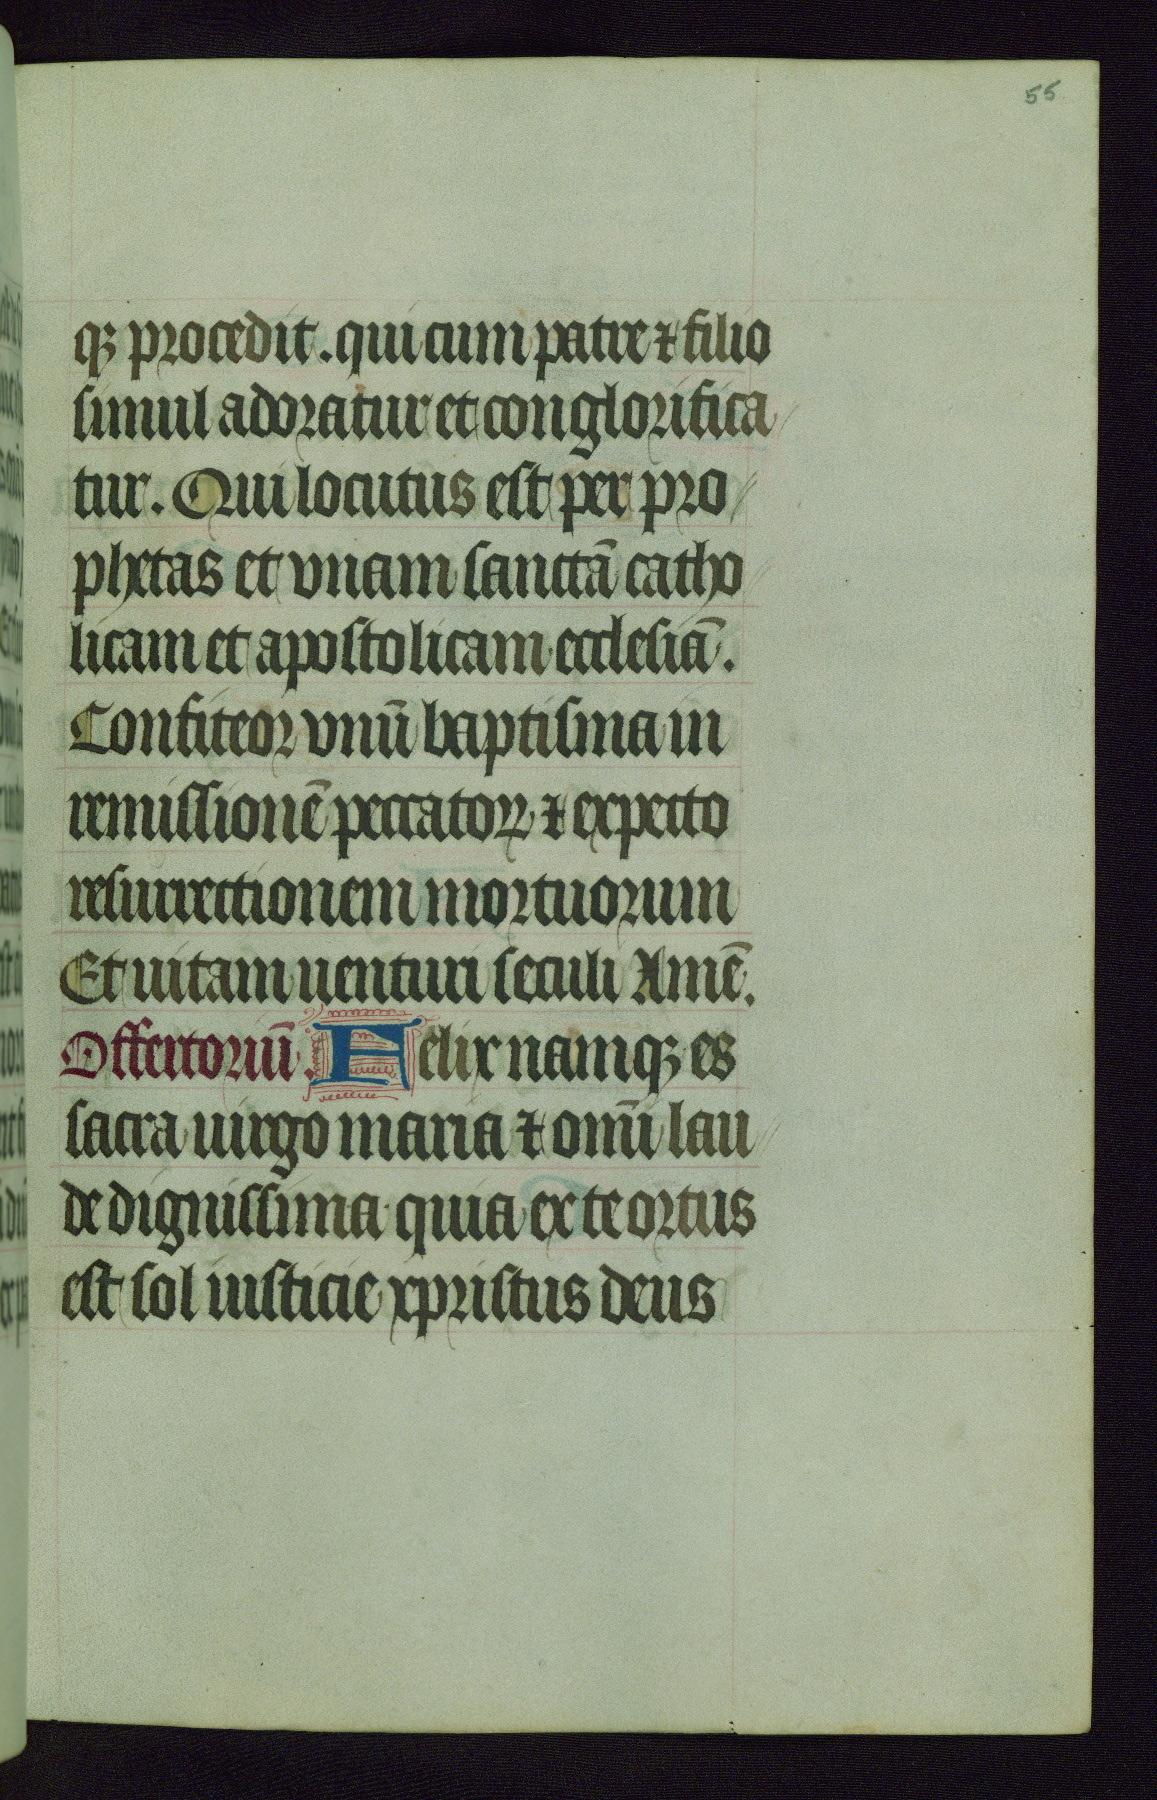 55
qꝫ procedit. qui cum patre ⁊ filio
simul adoratur et conglorifica
tur. Qui locutus est per pro
phetas et vnam sanctā catho
licam et apostolicam ecclesiā.
Confiteor vnū baptisma in
remissionē peccatoꝝ ⁊ expecto
resurrectionem mortuorum
Et uitam uenturi seculi Amē.
Offertoriū. Felix namqꝫ es
sacra uirgo maria ⁊ om̄i lau
de dignissima quia ex te ortus
est sol iusticie xpristus deus